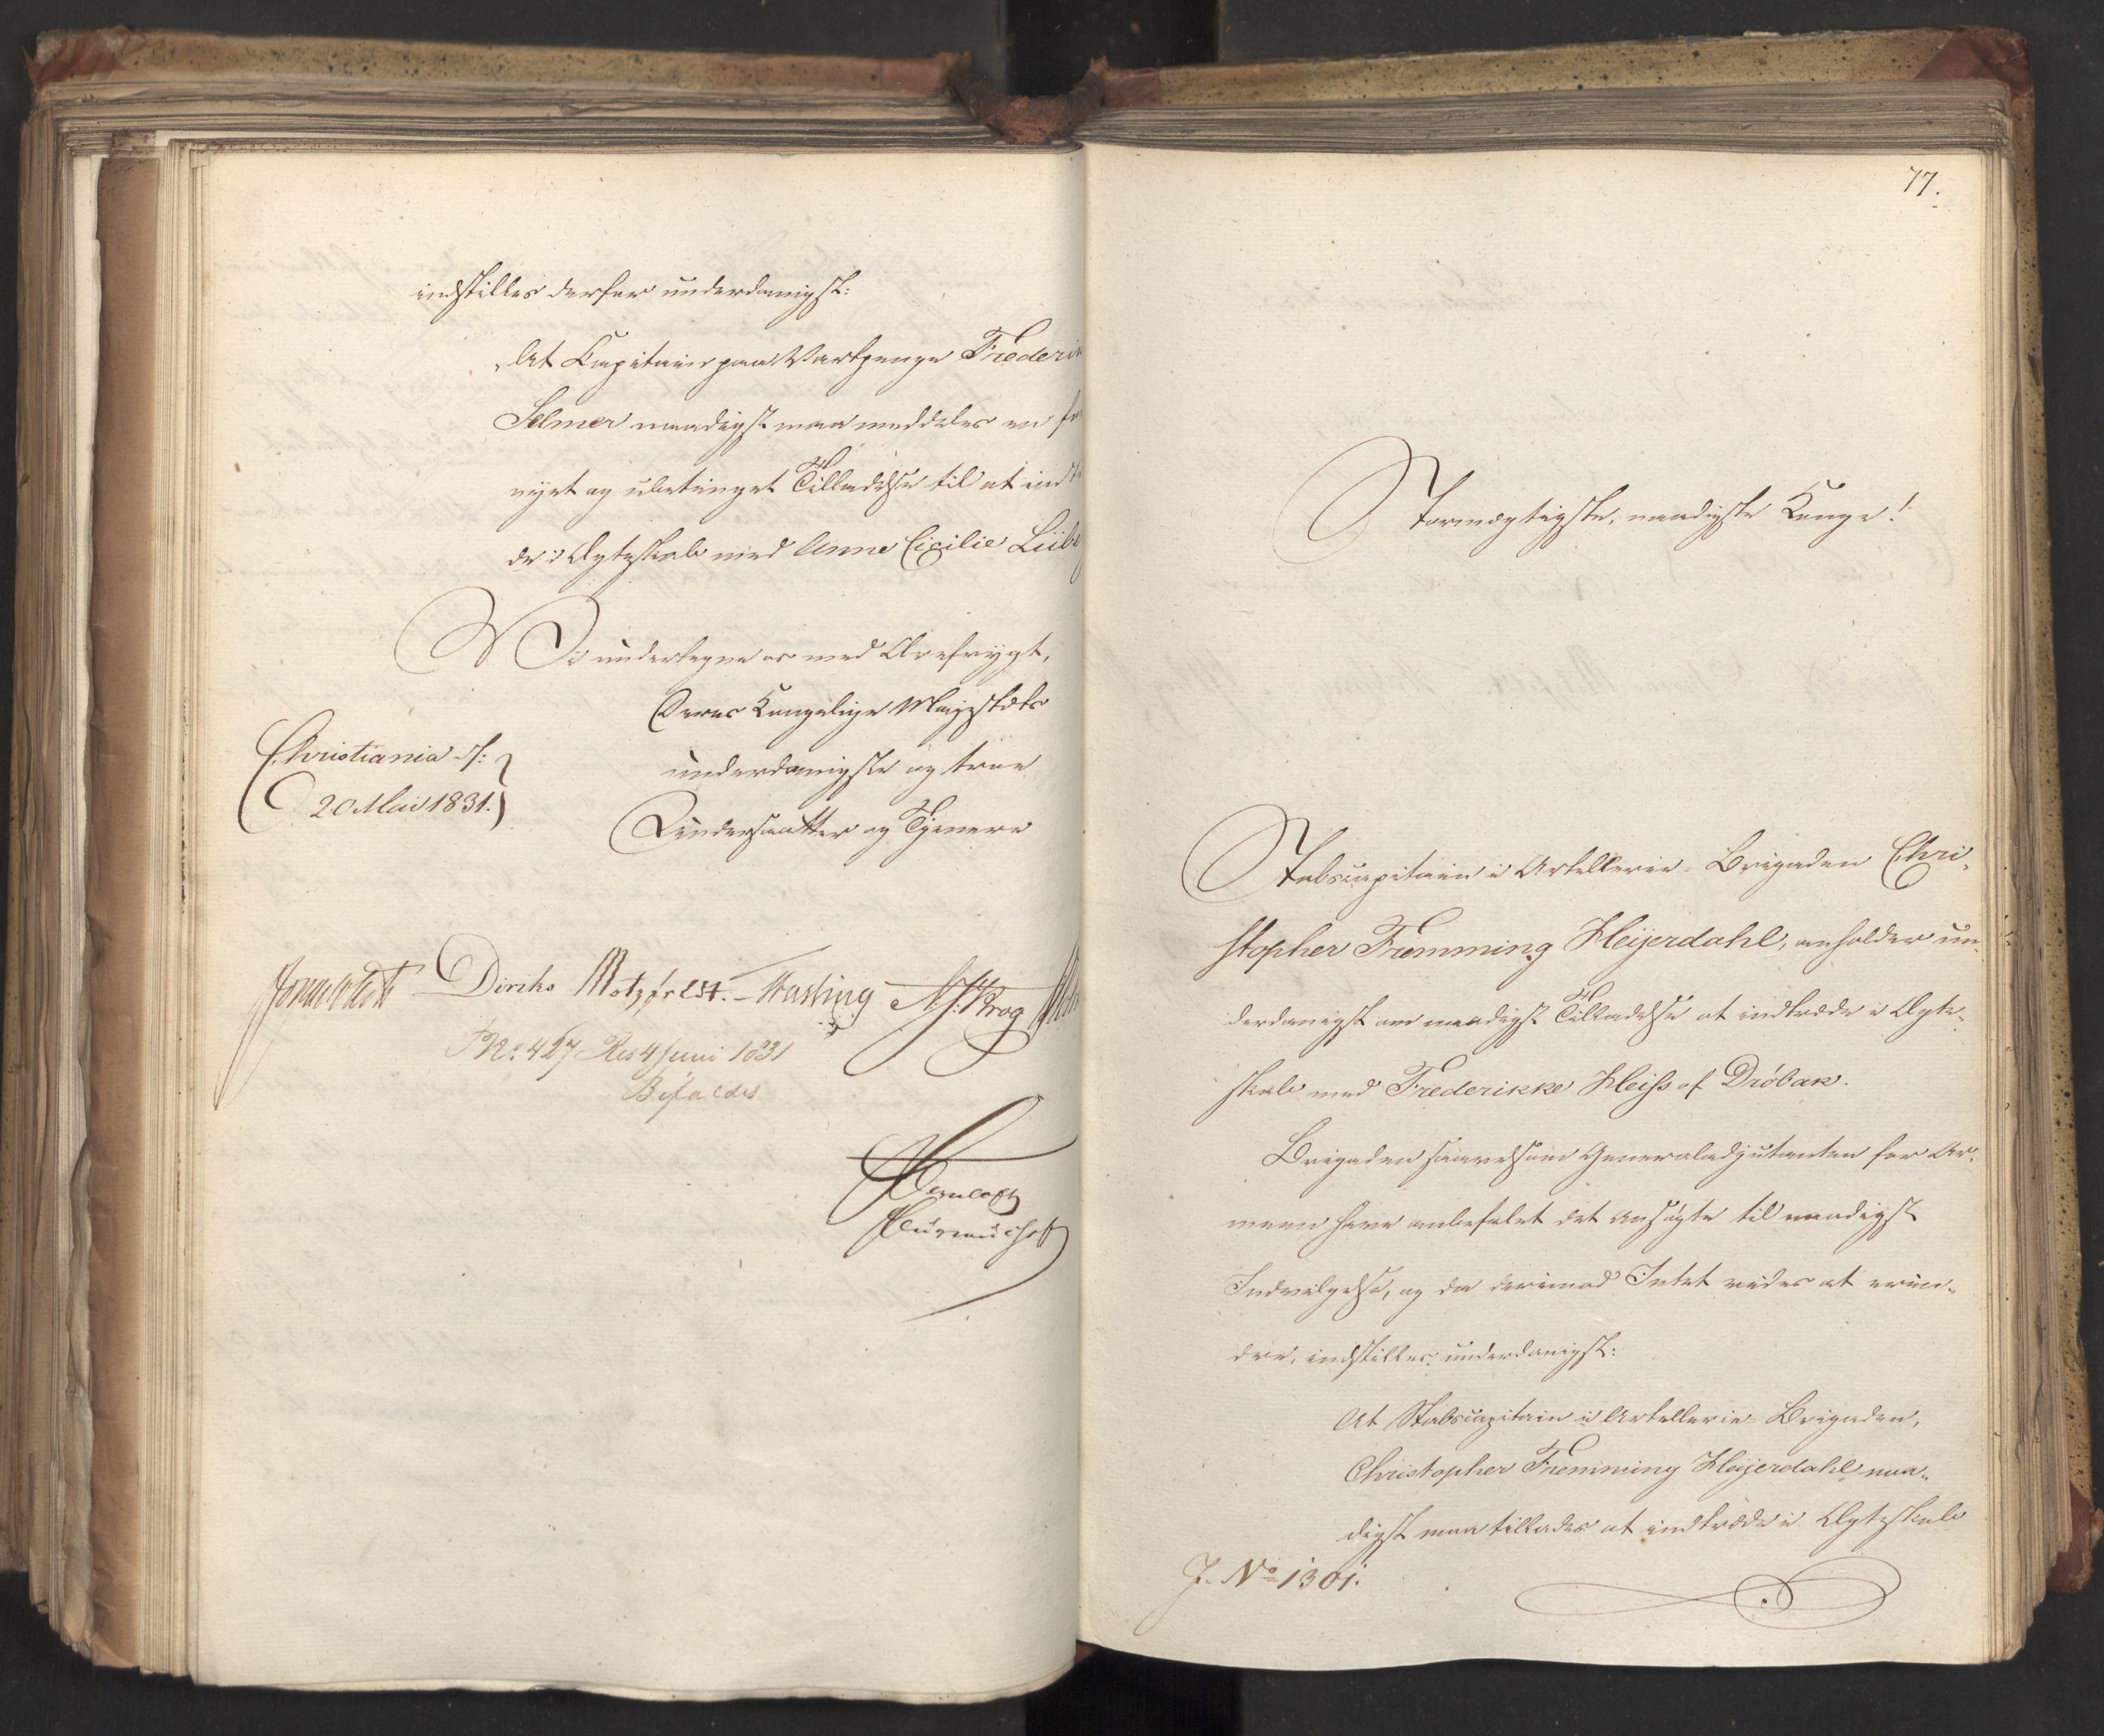 indstilles derfor underdanigst:
„At Capitain paa Vartpenge Frederik
Selmer naadigst maa meddeles en for
nyet og ubetinget Tilladelse til at indtræ
de i Ægteskab med Anne Cicilie Lübe
Vi undertegne os med Ærefrygt,
Deres Kongelige Majestæts
underdanigste og troe
Undersaatter og Tjenere
Christiania d:
20 Mai 1831.
Diriks Motzfeldt. Fasting N. J. Krog
No. 427 Res 4 Juni 1831
Bifaldes
77.
Stormægtigste, naadigste Konge!
Stabscapitain i Artellerie-Brigaden Chri-
stopher Fremming Heijerdahl, anholder un-
derdanigst om naadigst Tilladelse at indtræde i Ægte-
skab med Frederikke Heiss af Dröbak.
Brigaden saavelsom Generaladjutanten for Ar-
meen have anbefalet det Ansøgte til naadigst
Indvilgelse, og da derimod Intet vides at erin-
dre, indstilles underdanigst:
At Stabscapitain i Artellerie Brigaden,
Christopher Fremming Heijerdahl naa-
digst maa tillades at indtræde i Ægteskab
J. No 1301.